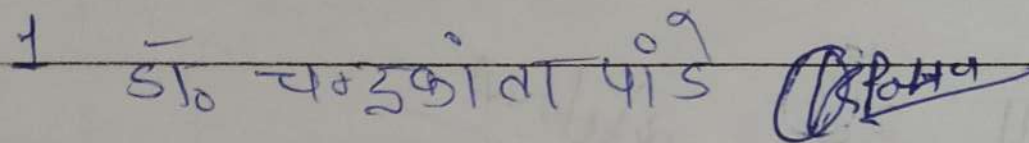 1 डॉ० चन्द्रकांता पांडे